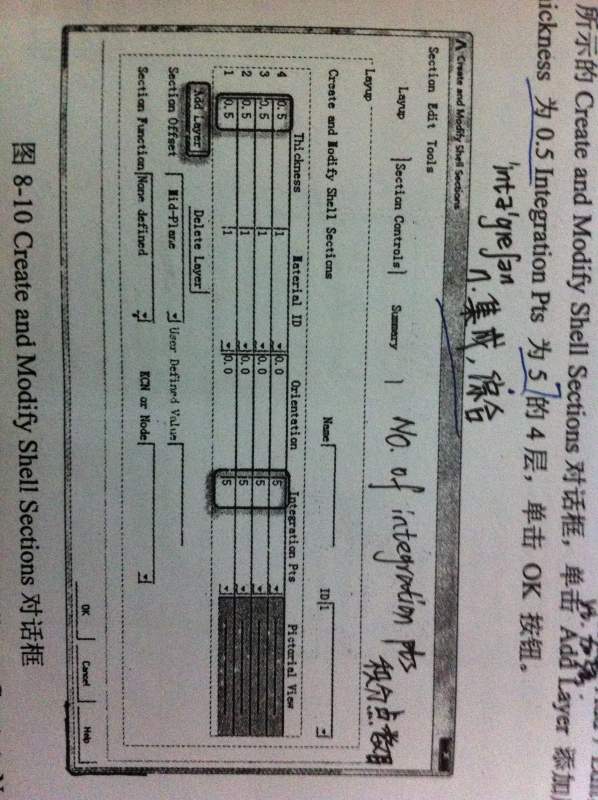 所示的 Create and Modify Shell Sections 对话框，单击 Add Layer 添加
ickness 为 0.5 Integration Pts 为 5 的 4 层，单击 OK 按钮。
n. 集成，综合
Create and Modify Shell Sections
Section Edit Tools
Layup Section Controls Summary
No. of integration pts
积分点数目
Layup
Create and Modify Shell Sections Name ID 1
Thickness Material ID Orientation Integration Pts Pictorial View
4 0.5 1 0.0 5
3 0.5 1 0.0 5
2 0.5 1 0.0 5
1 0.5 1 0.0 5
Add Layer Delete Layer
Section Offset Mid-Plane User Defined Value
Section Function None defined KCN or Node
OK Cancel Help
图 8-10 Create and Modify Shell Sections 对话框